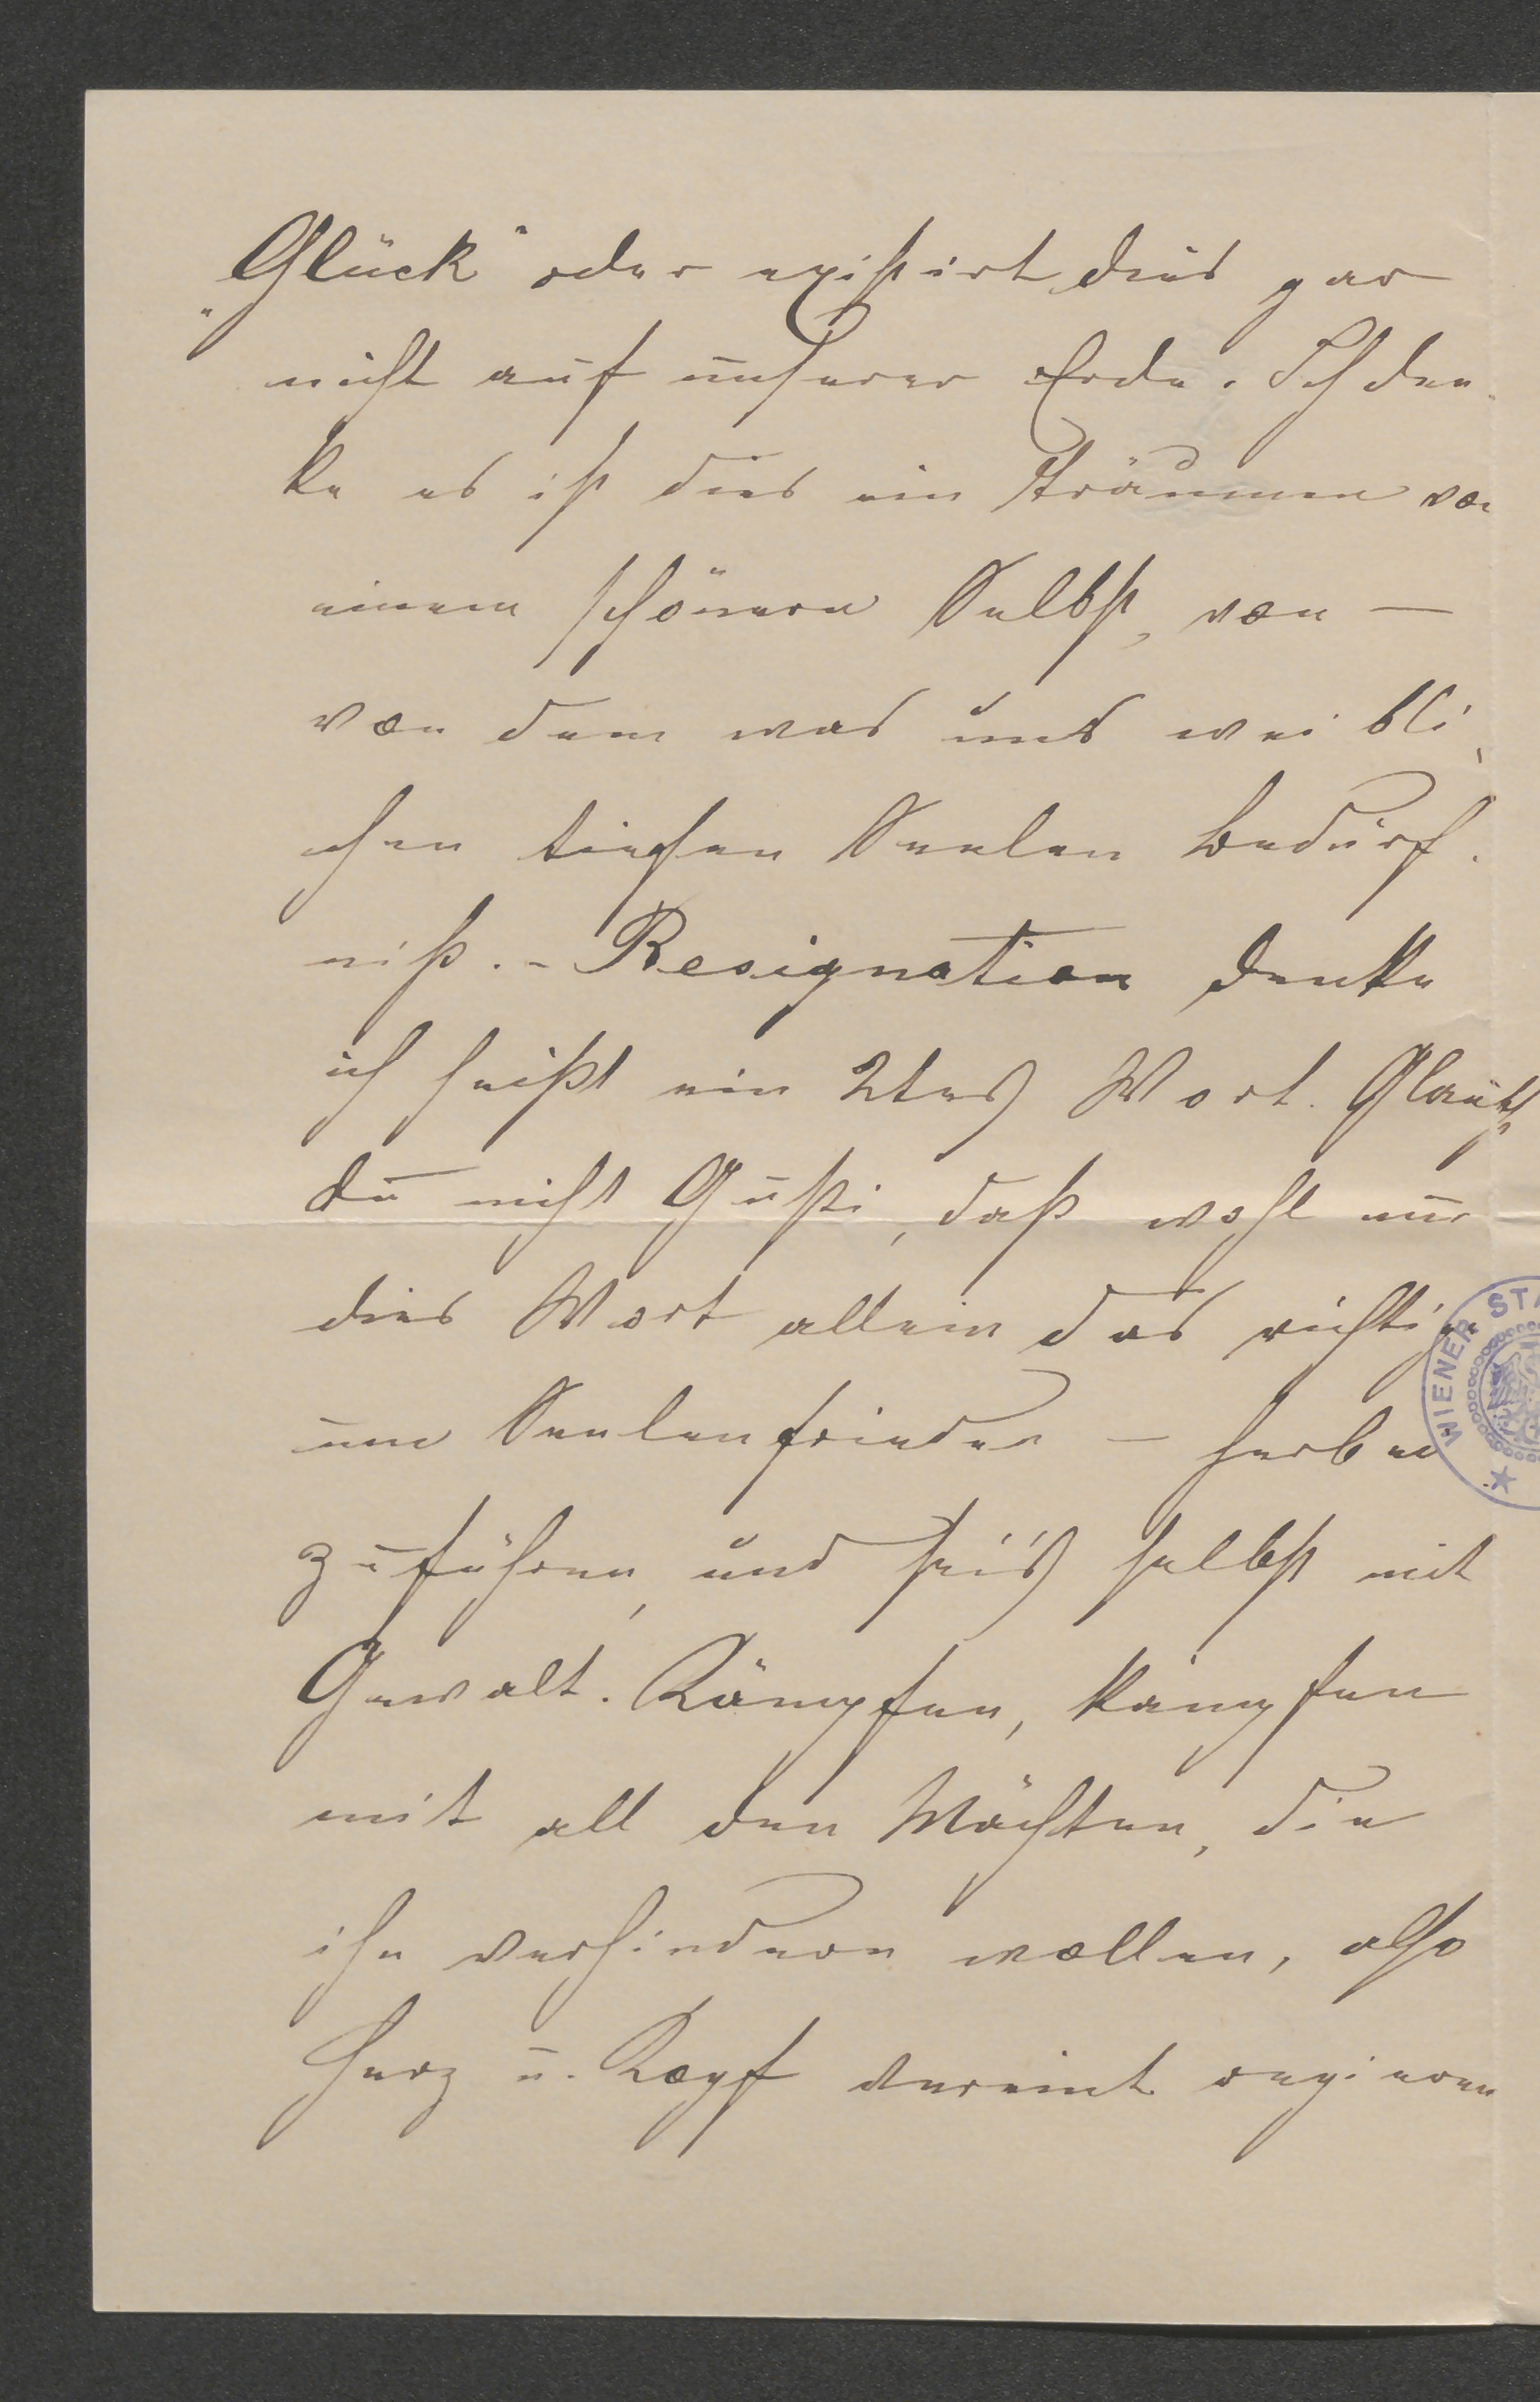 „Glück“ oder existirt dies gar
nicht auf unserer Erde. Ich den-
ke es ist dies ein träumen von
einem schönern Selbst, von —
von dem was uns weibli-
chen tiefen Seelen Bedürf-
niß. - Resignation denke
ich heißt ein 2tes Wort. Glaubst
du nicht Gusti, daß wohl nur
dies Wort allein das richtige
um Seelenfrieden — herbei
zuführen, und sei's selbst mit
Gewalt. Kämpfen, kämpfen
mit all den Mächten, die
ihn verhindern wollen, also
Herz u. Kopf vereint regieren
WIENER STA